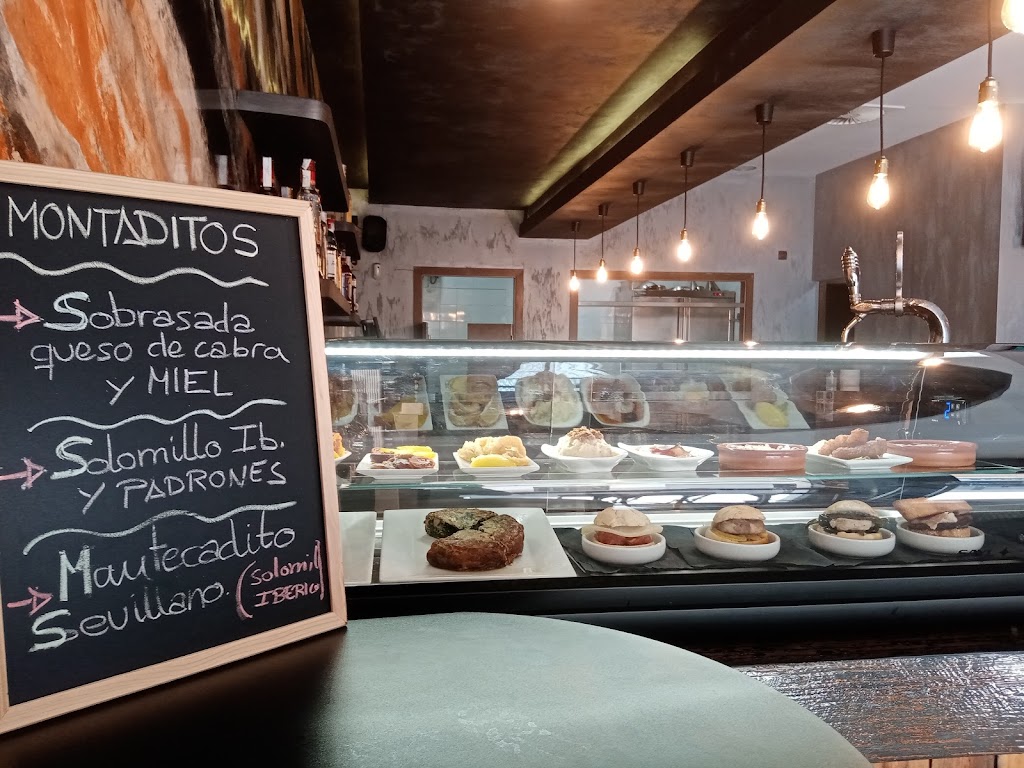 MONTADITOS
Sobrasada
queso de cabra
y MIEL
Solomillo Ib.
y PADRONES
Mantecadito
Sevillano.
(Solomill
IBERICO)